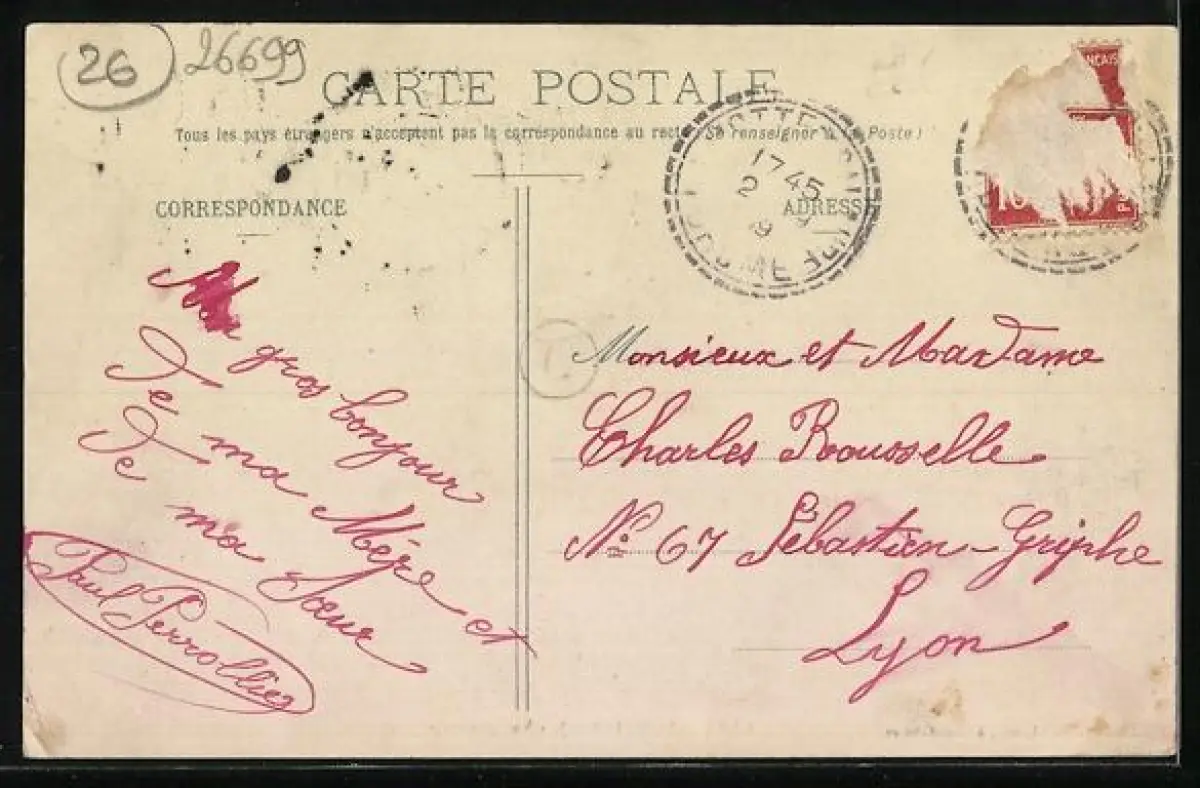 26
26699
CARTE POSTALE
Tous les pays étrangers n'acceptent pas la correspondance au recto (Se renseigner à la Poste)
CORRESPONDANCE
ADRESSE
17 45
2
9
ME
10
P
Un gros bonjour
De ma Mère et
De ma Sœur
Paul Perrollier
Monsieur et Madame
Charles Rousselle
No 67 Sébastien-Griphe
Lyon